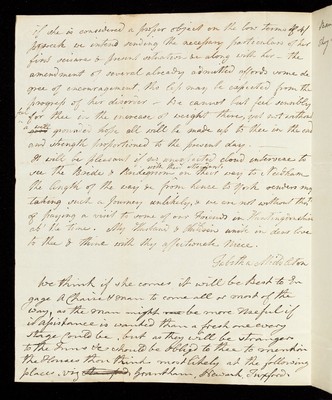 if she is considered a proper object on the low terms of 4/
p week we intend sending the necessary particulars of her
first seizure & present situation &c along with her — the
amendment of several already admitted affords some de
gree of encouragement, tho less may be expected from the
progress of her disorder — We cannot but feel sensibly
for thee in the increase of weight there, yet not without
a well grounded hope all will be made up to thee in the end
and strength proportioned to the present day.
It will be pleasant if no unexpected cloud intervenes to
see the Bride & Bridegroom with their attendants on their way to
the length of the way &c from hence to York renders my
taking such a Journey unlikely, & we are not without thots
of paying a visit to some of our Friends in Huntingdonshire
abt the time. My Husband & unite in dear love
to thee & thine with thy affectionate Niece.
Tabitha Middleton
We think if she comes it will be Best to En
gage a Chaise & man to come all or most of the
way, as the man might be more useful if
if assistance is wanted than a fresh one every
Stage could be, but as they will be Strangers
to the Inns &c should be oblig'd thee to mention
the Houses thou think's most likely at the following
places, viz Grantham, Newark, Tuxford.